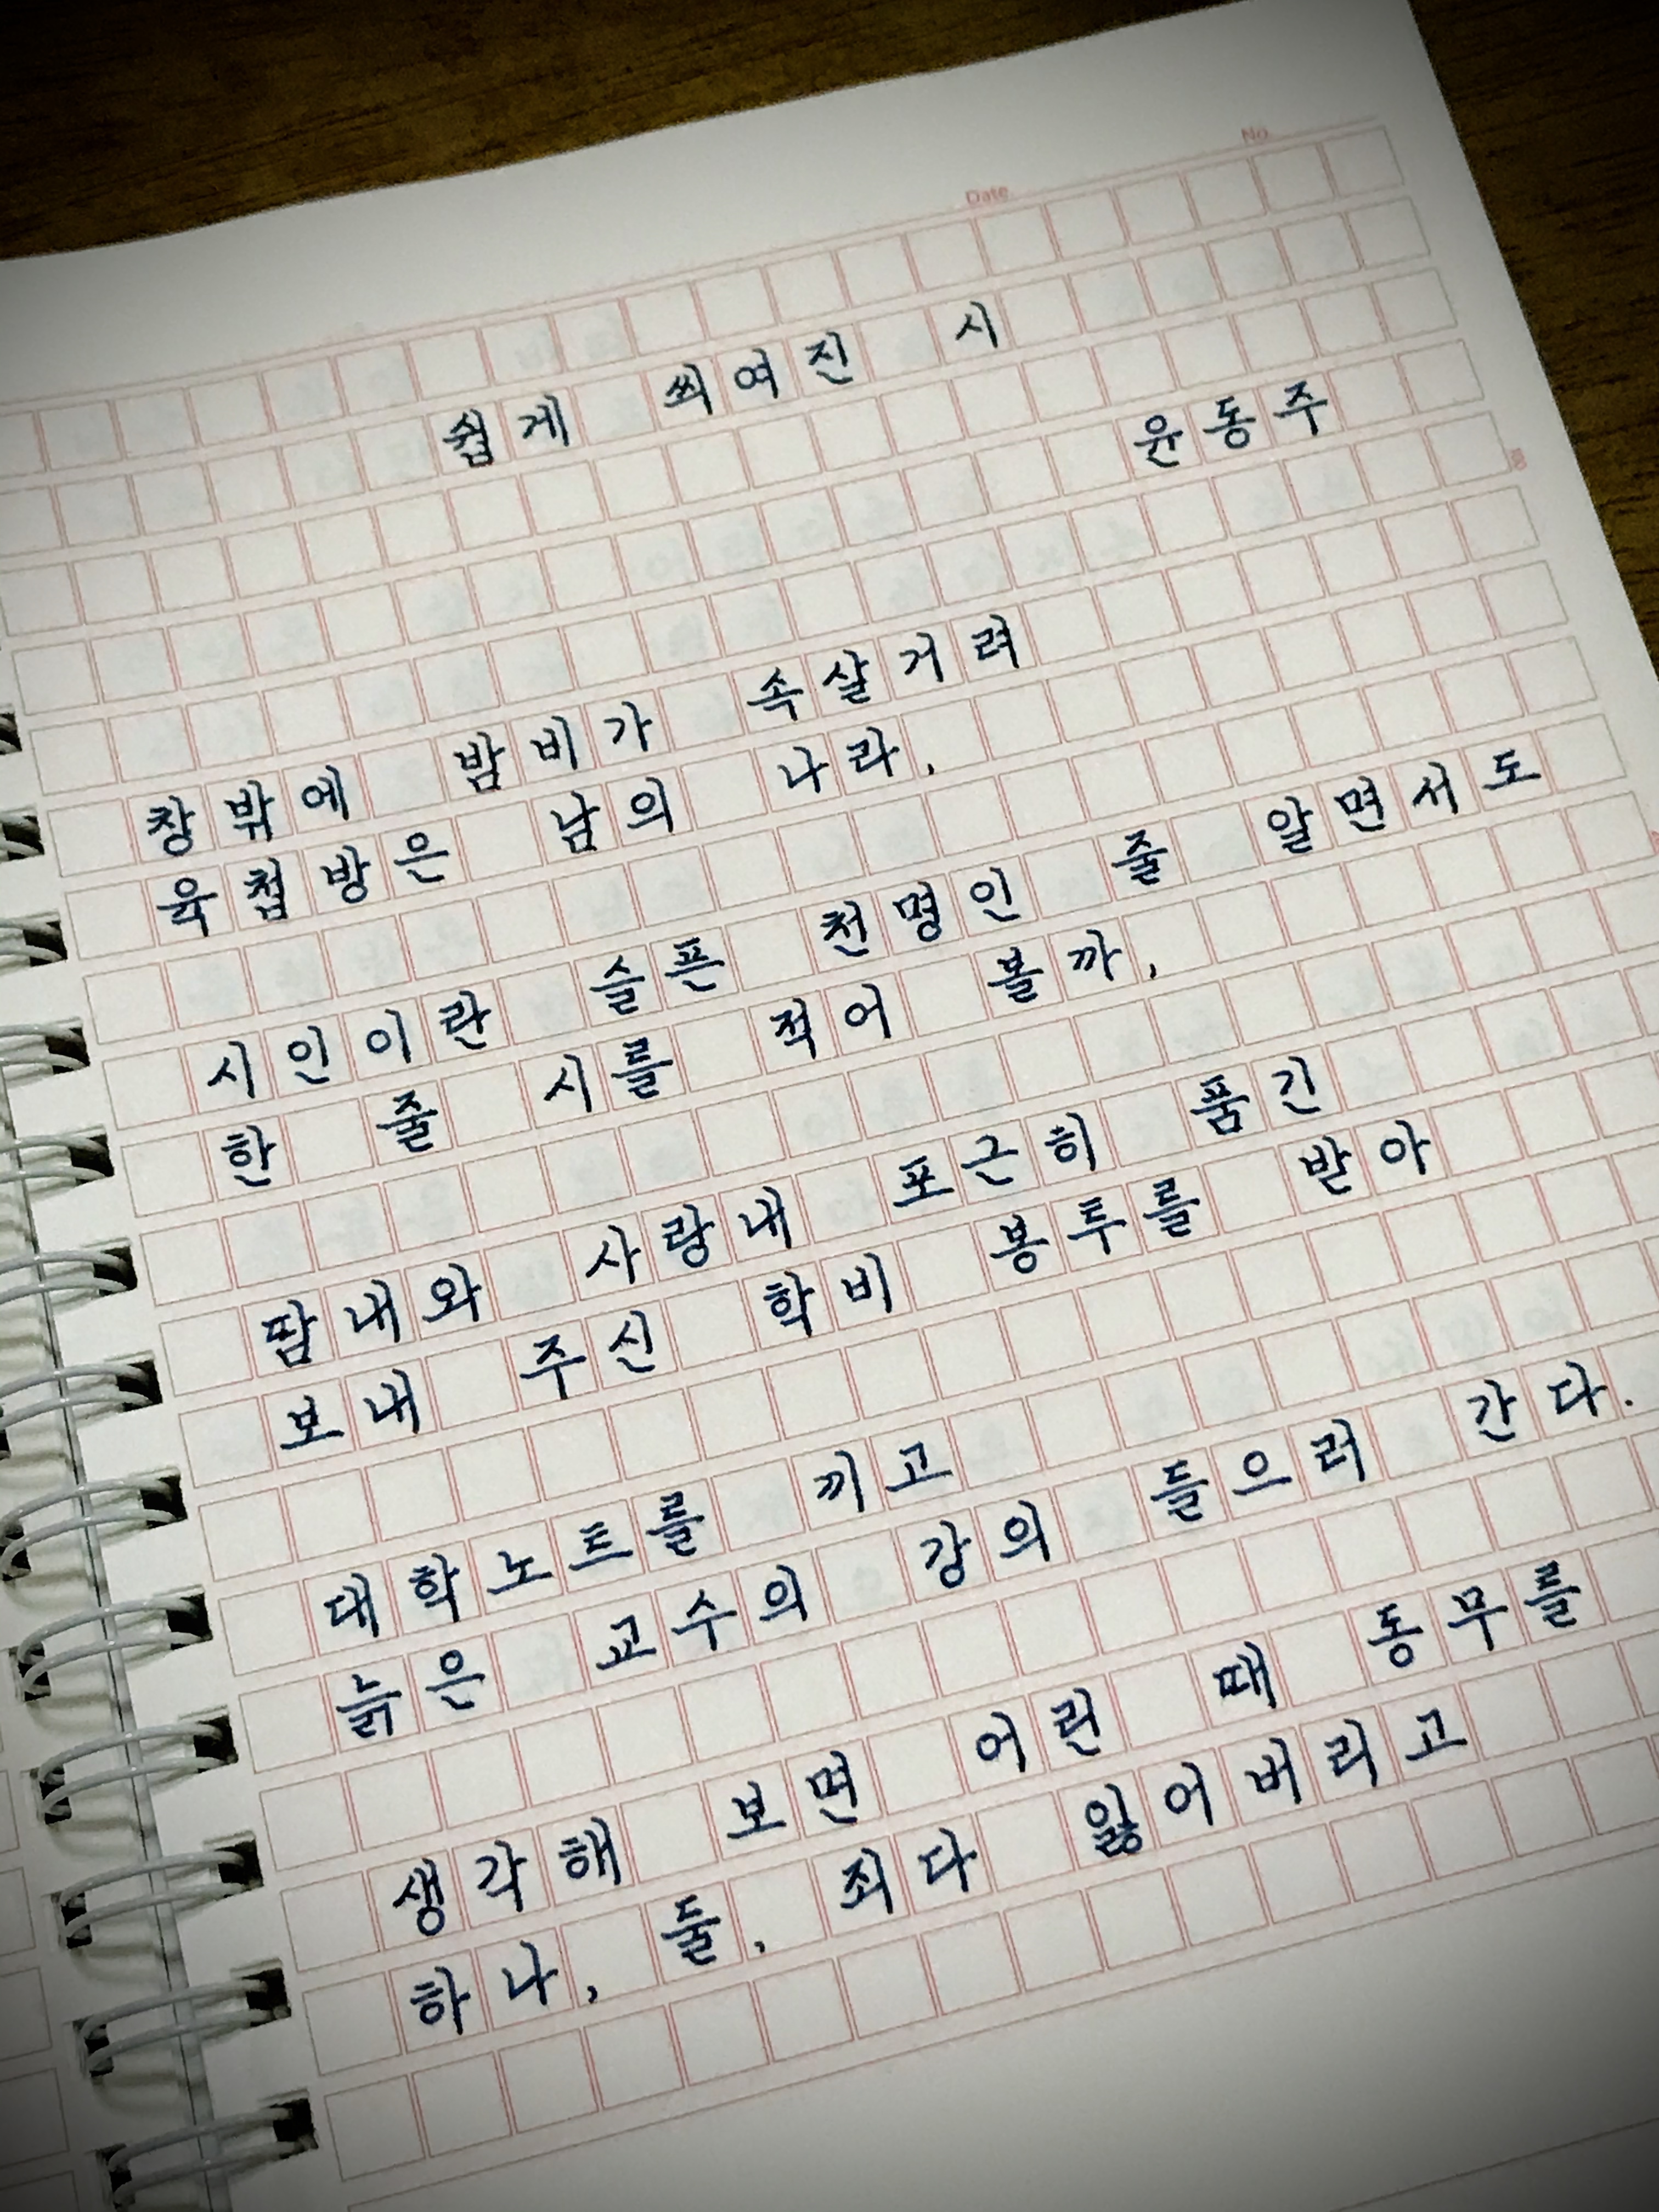 No.
Date.
쉽게 씌여진 시
윤동주
창밖에 밤비가 속살거려
육첩방은 남의 나라.
시인이란 슬픈 천명인 줄 알면서도
한 줄 시를 적어 볼까,
땀내와 사랑내 포근히 품긴
보내 주신 학비 봉투를 받아
대학노트를 끼고
늙은 교수의 강의 들으러 간다.
생각해 보면 어린 때 동무를
하나, 둘, 죄다 잃어버리고